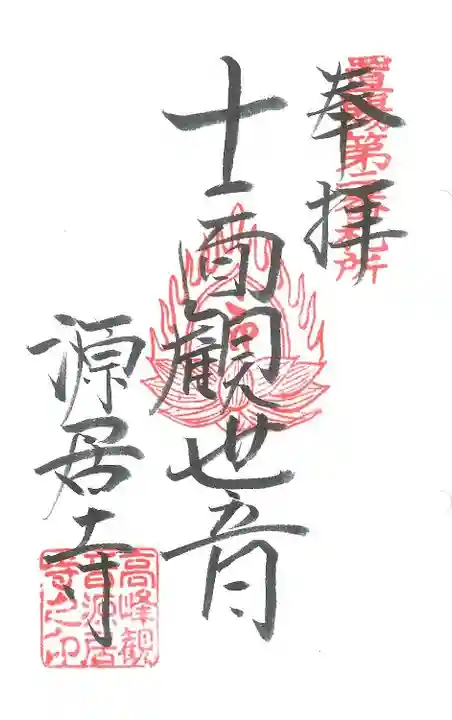 置賜第二番札所
奉拝
十一面観世音
源居寺
高峰観
音源居
寺之印